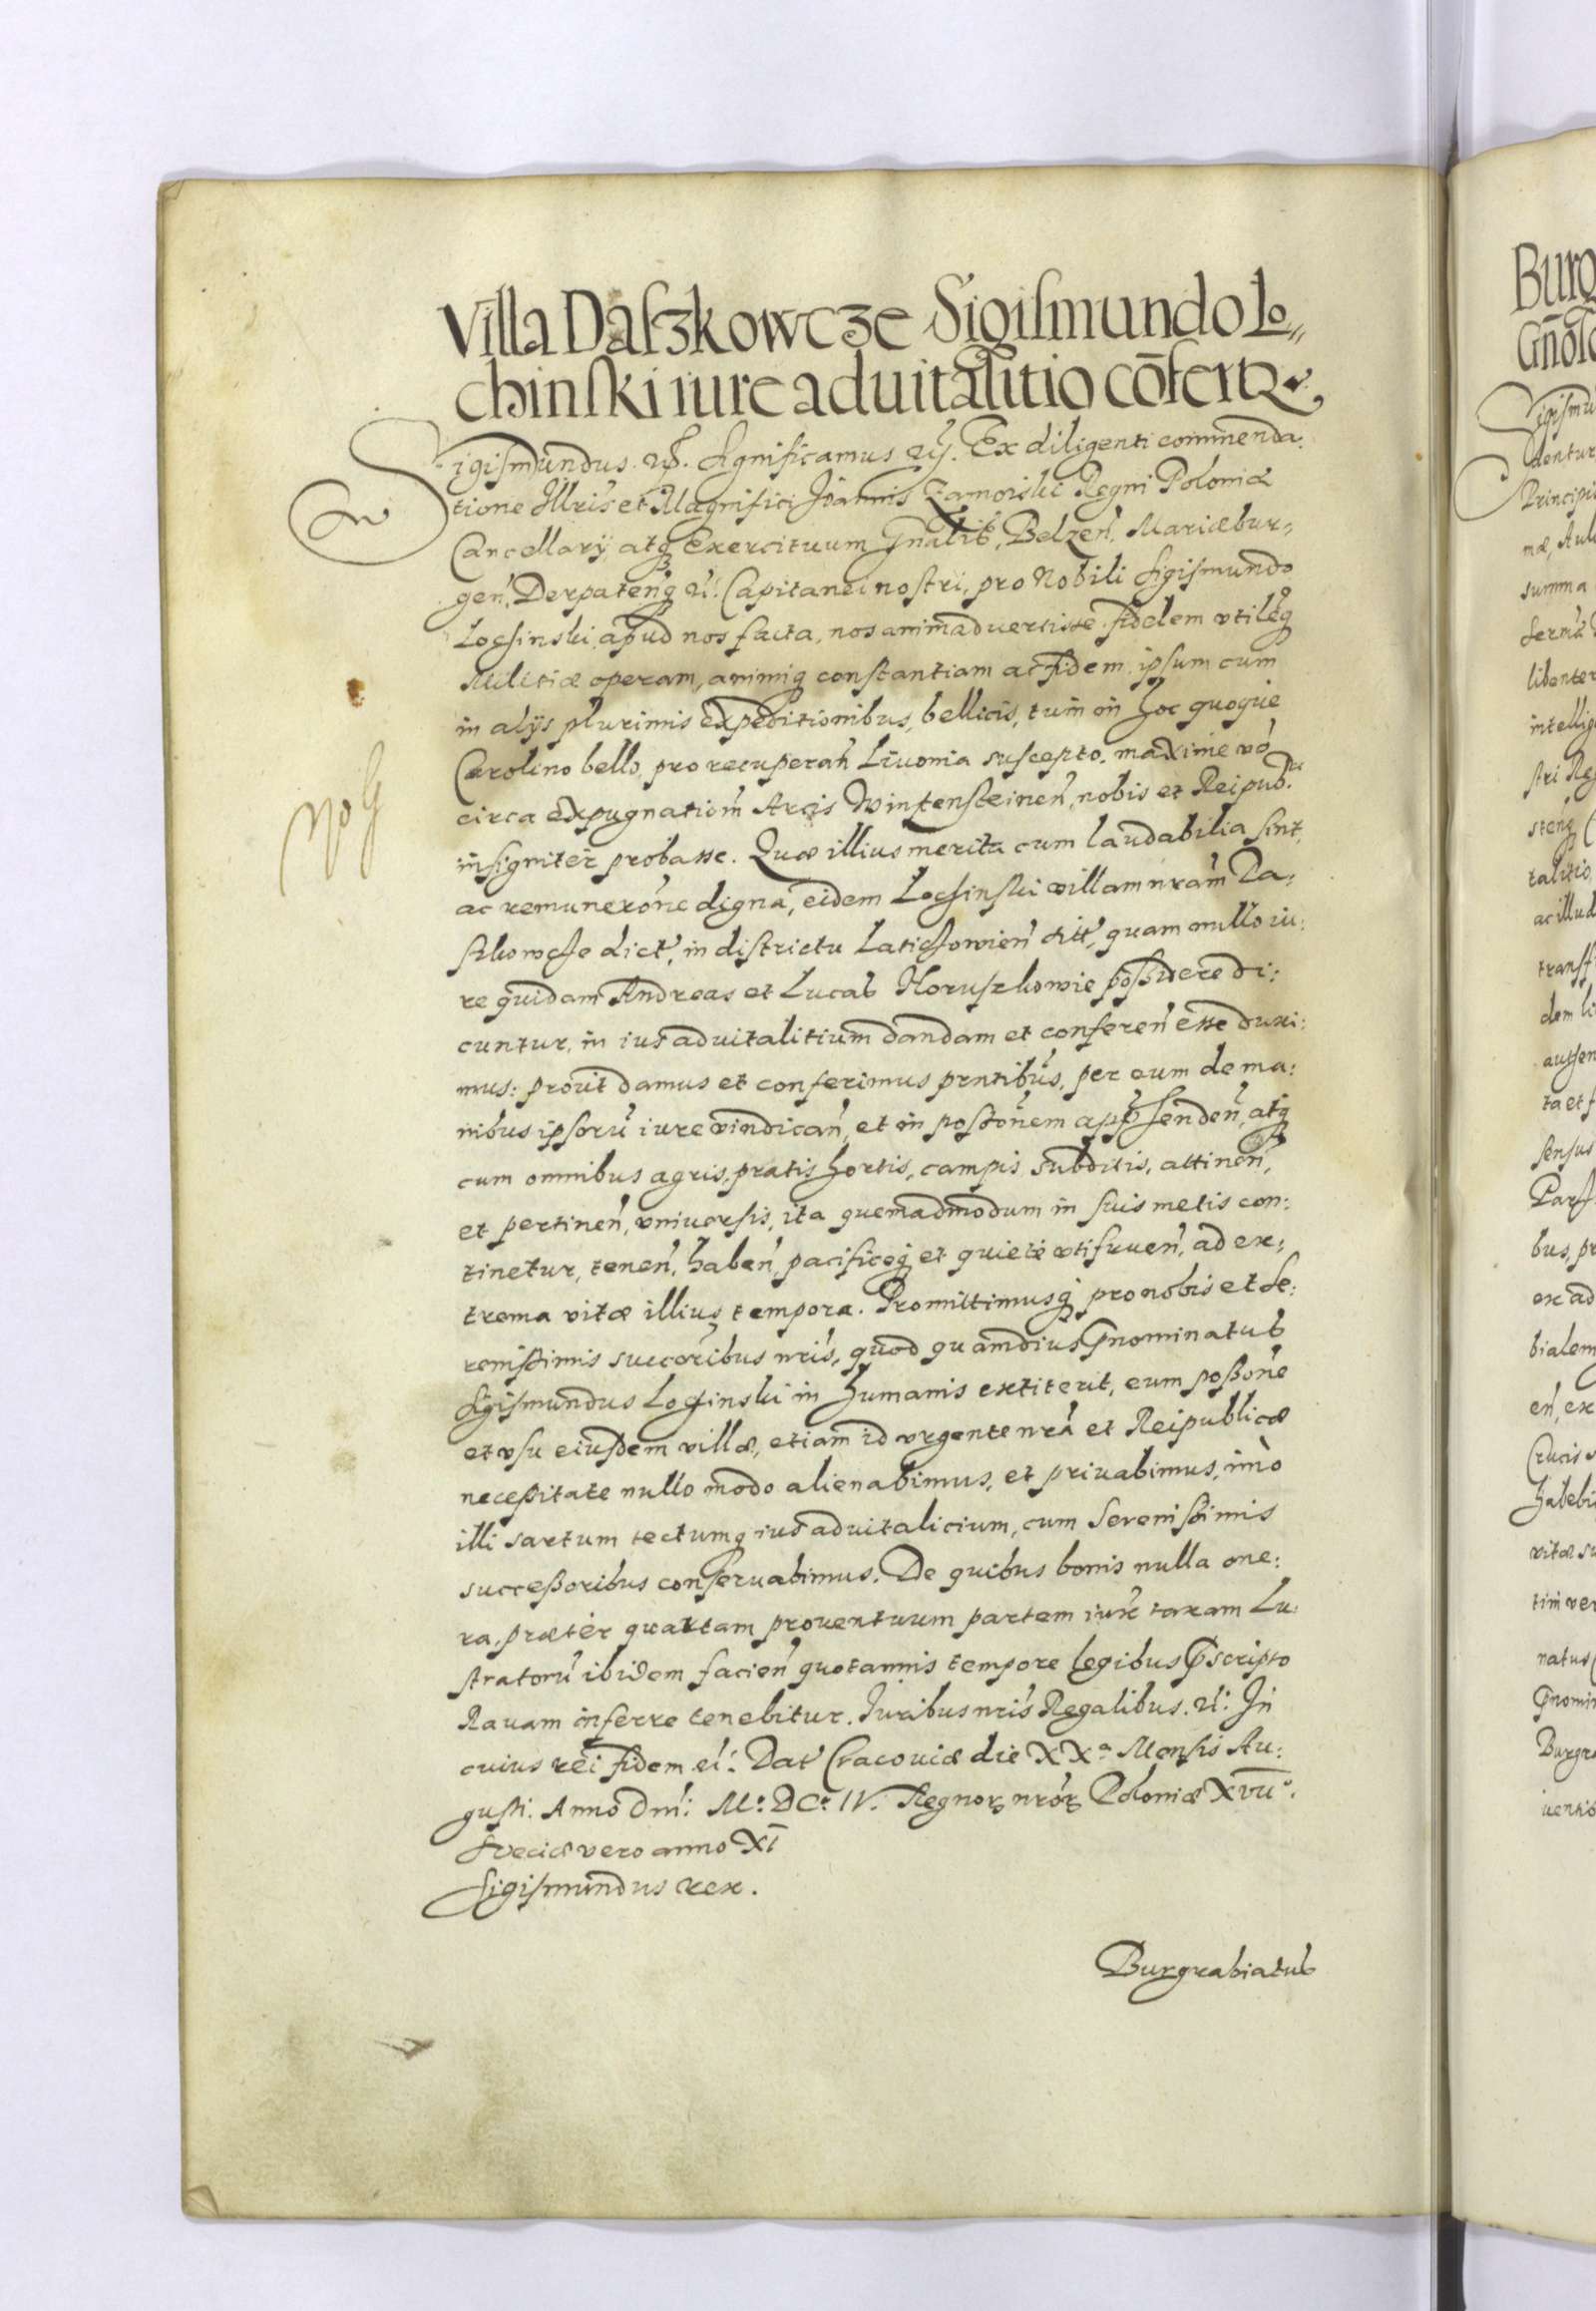 Villa Daſzkowcze Sigiſmundo Lo„
chinſki iure aduitalitio cōfertꝛ
Sigiſmundus etc. Significamus etc. Ex diligenti commenda:
tione Illris et Magnifici Joannis Zamoiski Regni Poloniæ
Cancellarij atq; Exercituum Gnalis, Belzen̄, Mariæbur„
gen̄, Derpaten̄q; etc. Capitanei nostri, pro Nobili Sigiſmundo
Lochinski apud nos facta, nos animaduertisse fidelem vtilēq;
Militiæ operam, animiq; constantiam ac fidem ipsum cum
in alijs plurimis expeditionibus bellicis, tum in hoc quoque
Carolino bello pro recuperan̄ Liuonia suscepto, maxime vō
circa expugnationem̄ Arcis Wintensteinen̄, nobis et Reipub.
insigniter probasse. Quæ illius merita cum laudabilia sint,
ac remunerōne digna, eidem Lochinski villam nram̄ Da:
szkowcze dict̄, in districtu Latichowien̄ sitt, quam nullo iu:
re quidam Andreas et Lucas Horuszkowie poßidere di:
cuntur, in ius aduitalitium dandam et conferen̄ esse duxi:
mus: prout damus et conferimus prntibus, per eum de ma:
nibus ipsorū iure vindican̄, et in poßōnem apphenden̄, atq;
cum omnibus agris, pratis, hortis, campis, subditis, attinen̄,
et pertinen̄, vniuersis, ita quemadmodum in suis metis con:
tinetur, tenen̄, haben̄, pacificeq; et quietè vtifruen̄, ad ex:
trema vitæ illius tempora. Promittimusq; pro nobis et se:
renißimis succoribus nris, quod quamdius pnominatus
Sigiſmundus Lochinski in humanis extiterit, eum poßōne
et vsu eiusdem villæ, etiam id vrgente nrā et Reipublicæ
neceßitate nullo modo alienabimus, et priuabimus, imò
illi sartum tectumq; ius aduitalicium, cum Serenißimis
succeßoribus conseruabimus. De quibus bonis nulla one:
ra, præter quartam prouentuum partem iux̄ taxam Lu:
stratorū ibidem facien̄ quotannis tempore legibus pscripto
Rauam inferre tenebitur. Juribus nris Regalibus etc. In
cuius rei fidem etc. Dat̄ Cracouiæ die XXa Mensis Au:
gusti. Anno Dni: Mo DCo IV. Regnorꝝ nrorꝝ Poloniæ XVIIo.
Sueciæ vero anno XI
Sigiſmundus rex.
Burgrabiatus